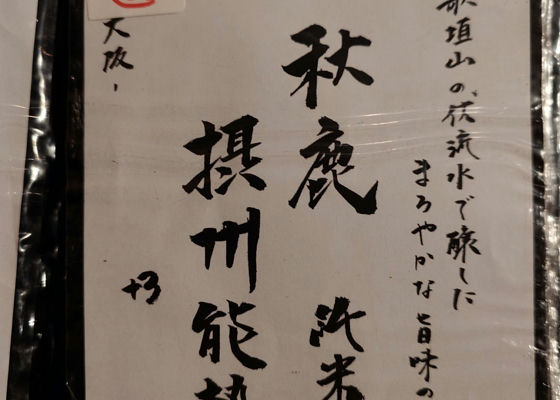 歌垣山の伏流水で醸した
まろやかな旨味の
秋鹿 純米
摂州能勢
大阪・
+3